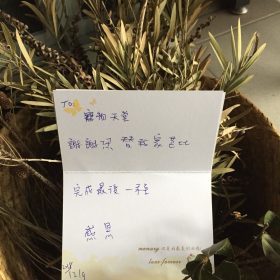 To:
寵物天堂
謝謝你 替我家芭比
完成最後一程
感恩
memory
love forever